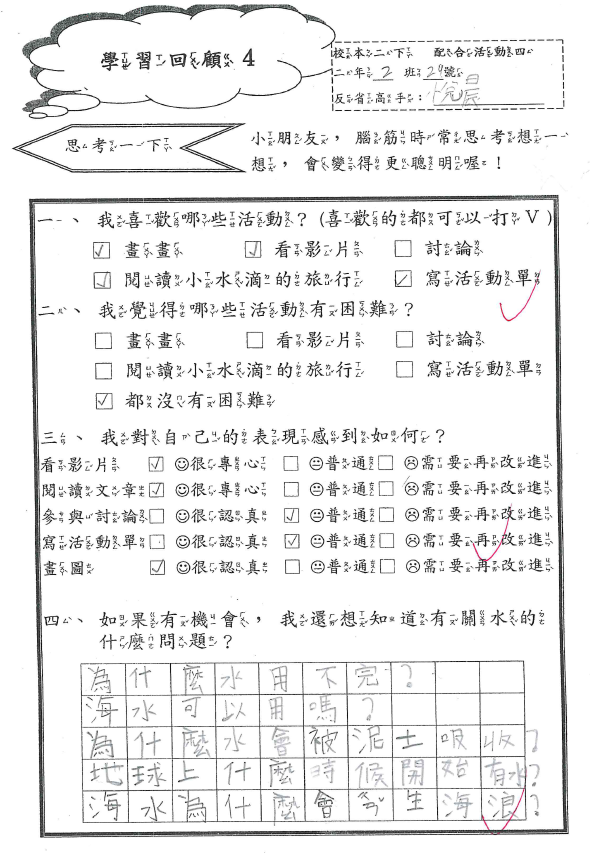 學習回顧 4
校本二下 配合活動四
二年 2 班 29 號
反省高手：
思考一下
小朋友，腦筋時常思考想一
想，會變得更聰明喔！
一、我喜歡哪些活動？(喜歡的都可以打V)
☑ 畫畫 ☑ 看影片 □ 討論
☑ 閱讀小水滴的旅行 ☑ 寫活動單
二、我覺得哪些活動有困難？
□ 畫畫 □ 看影片 □ 討論
□ 閱讀小水滴的旅行 □ 寫活動單
☑ 都沒有困難
三、我對自己的表現感到如何？
看影片 ☑ ☺很專心 □ 😐普通 □ ☹需要再改進
閱讀文章 ☑ ☺很專心 □ 😐普通 □ ☹需要再改進
參與討論 □ ☺很認真 ☑ 😐普通 □ ☹需要再改進
寫活動單 □ ☺很認真 ☑ 😐普通 □ ☹需要再改進
畫圖 ☑ ☺很認真 □ 😐普通 □ ☹需要再改進
四、如果有機會，我還想知道有關水的
什麼問題？
為什麼水用不完？
海水可以用嗎？
為什麼水會被泥土吸收？
地球上什麼時候開始有水？
海水為什麼會ㄔㄢˇ生海浪？